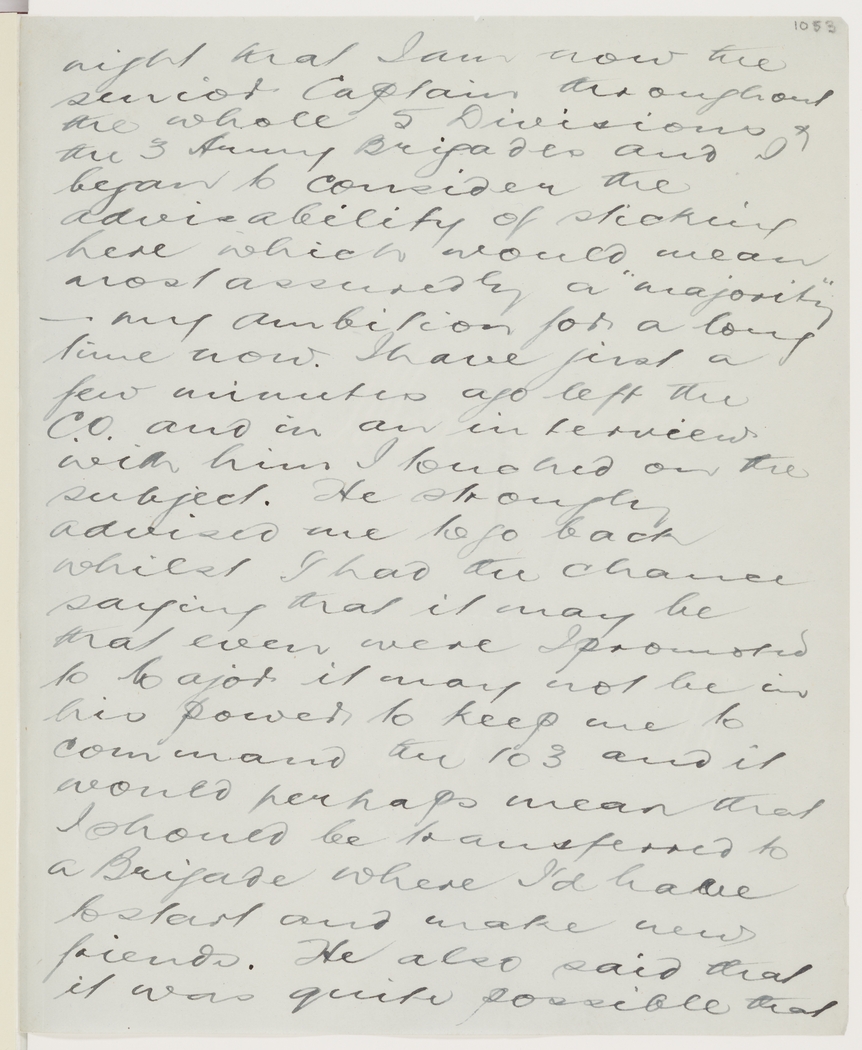 1053
night that I am now the
senior Captain throughout
the whole 5 Divisions &
the 3 Army Brigades and I
began to consider the
advisability of sticking
here which would mean
most assuredly a "majority"
— my ambition for a long
time now. I have just a
few minutes ago left the
C.O. and in an interview
with him I touched on the
subject. He strongly
advised me to go back
whilst I had the chance
saying that it may be
that even were I promoted
to Major it may not be in
his power to keep me to
command the 103 and it
would perhaps mean that
I should be transferred to
a Brigade where I'd have
to start and make new
friends. He also said that
it was quite possible that